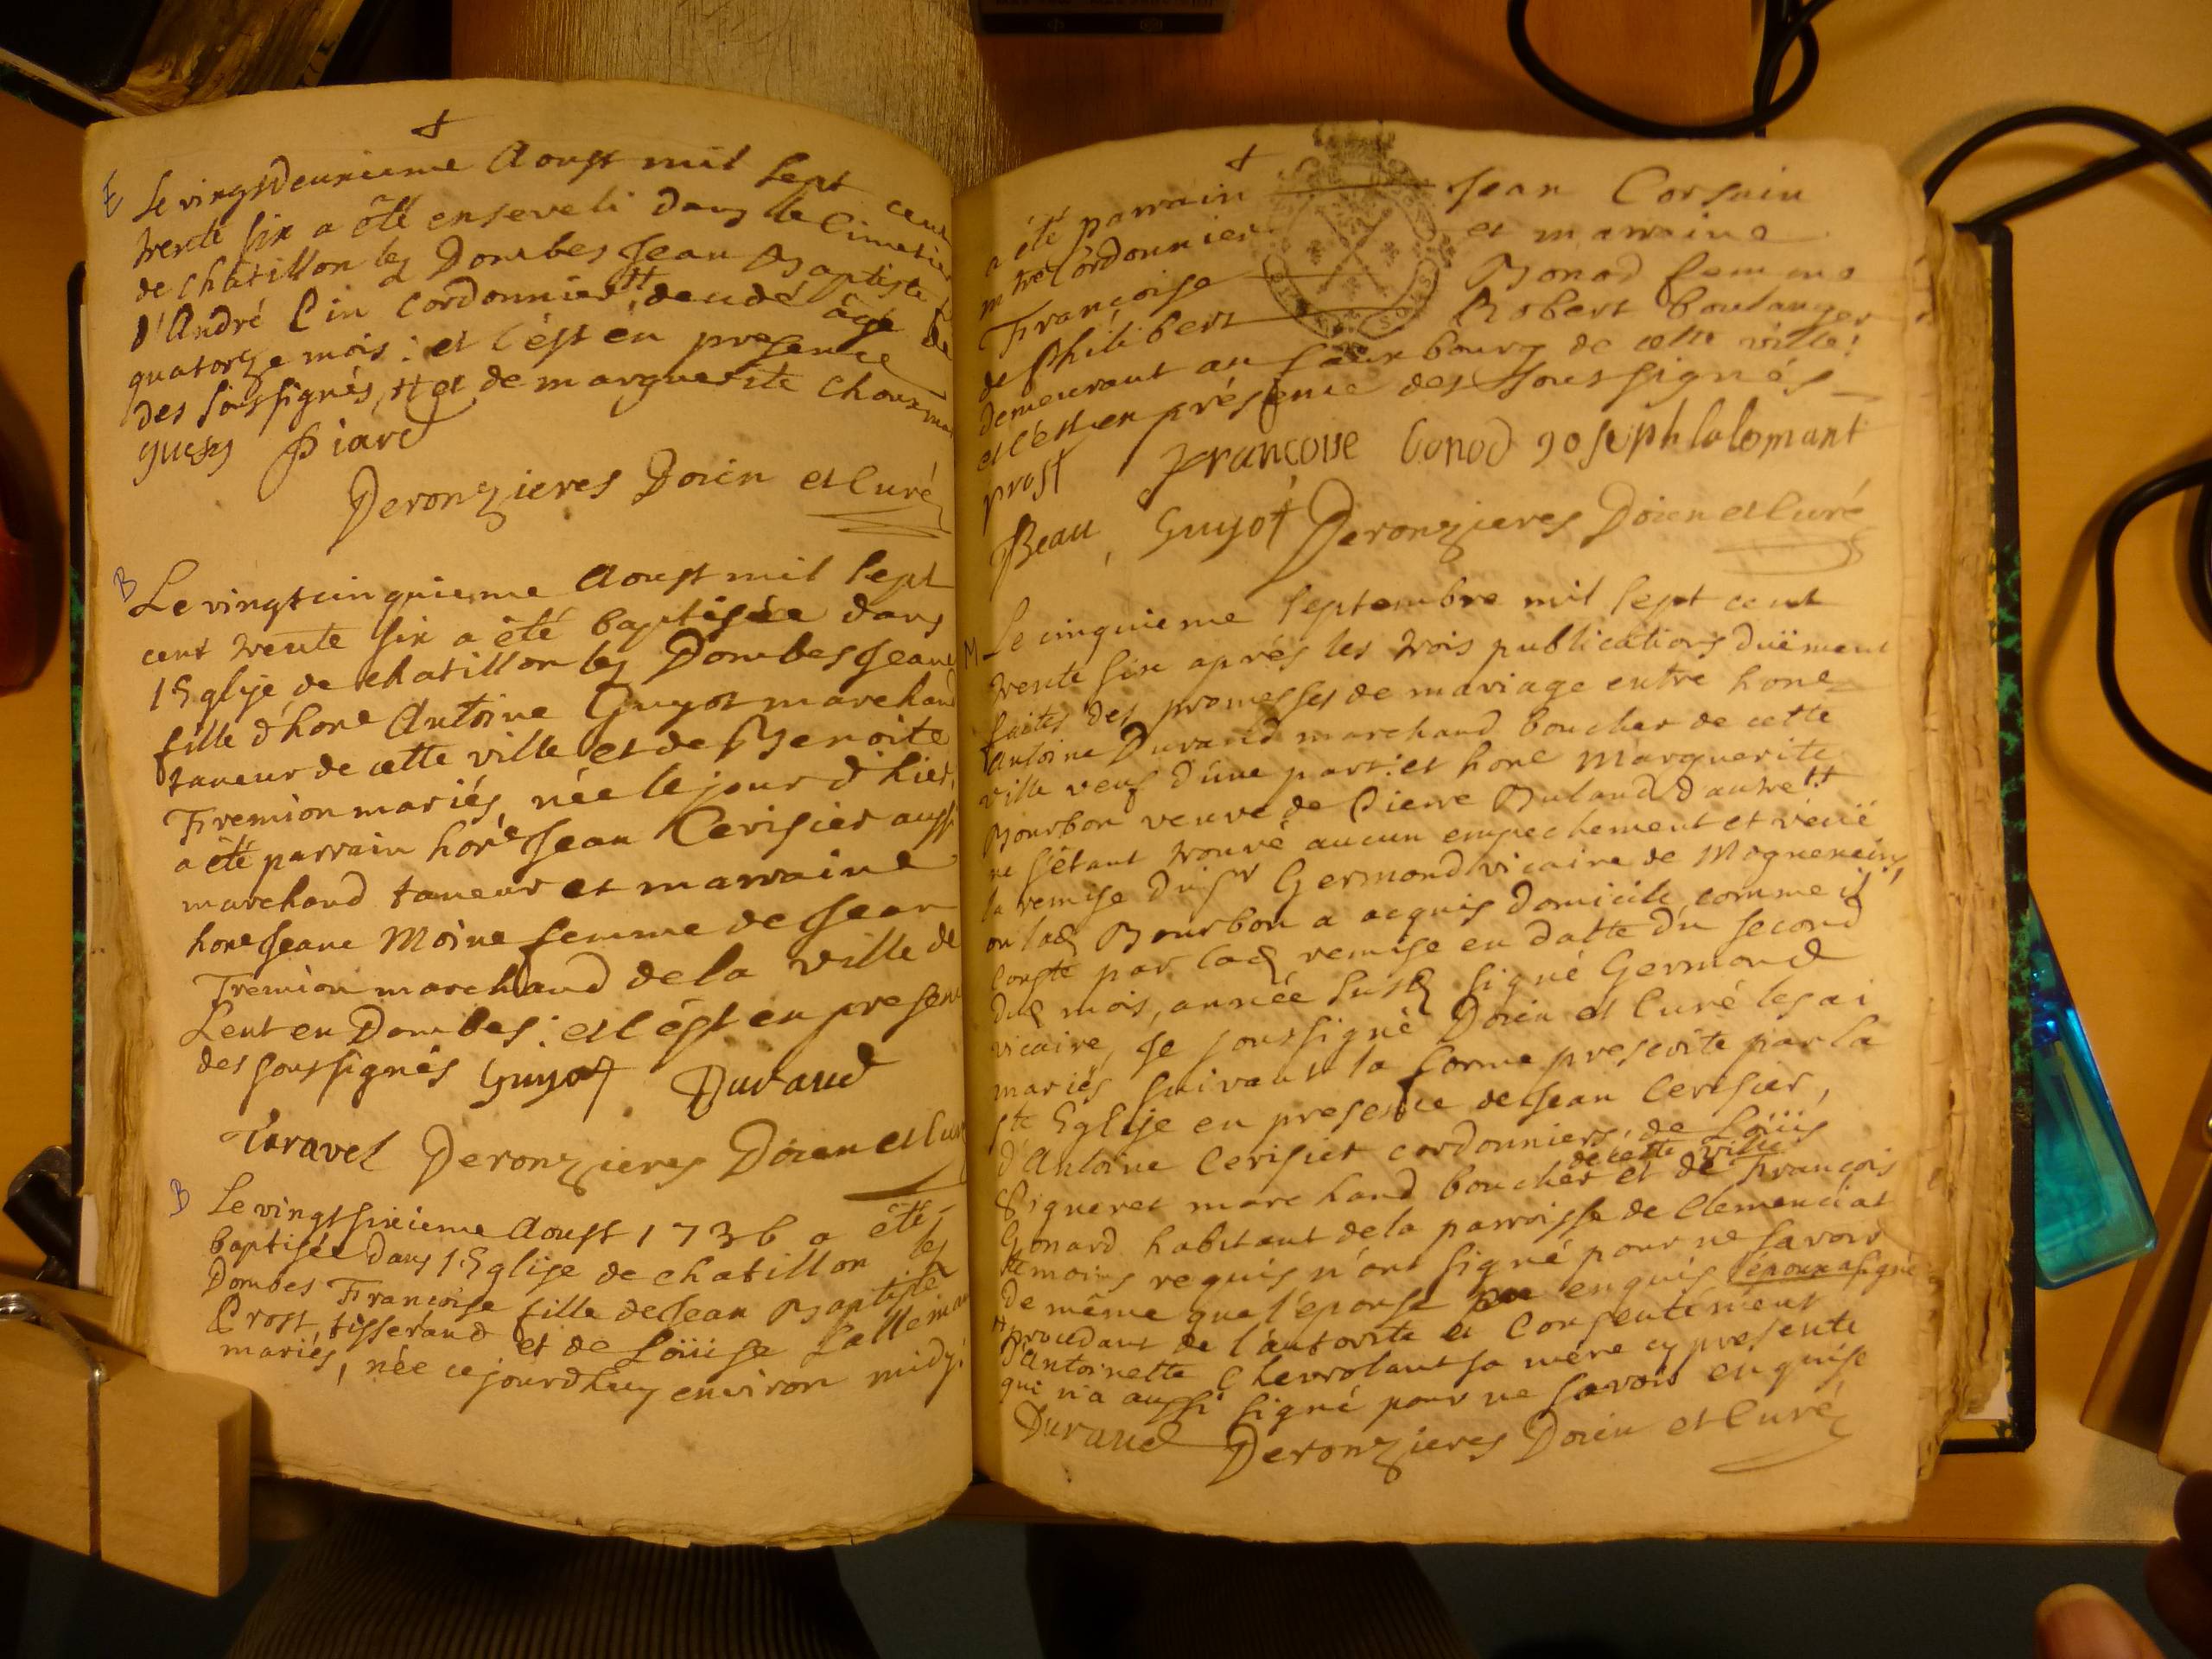 E
Le vingtdeuxieme Aoust mil sept cent
trente six a été enseveli dans le Cimetier
de chatillon les Dombes Jean Baptiste f
d'André Pin Cordonnier, âgé de
quatorze mois: et c'est en presence
des soussignés, et de marguerite
Piard
Deronzieres Doien et Curé
B
Le vingtcinquieme Aoust mil sept
cent trente six a été baptisée dans
l'Eglise de chatillon les Dombes Jeane
fille d'hone Antoine Guyot marchand
taneur de cette ville et de Benoite
Fremion mariés, née le jour d'hier,
a été parrain hone Jean Cerisier aussi
marchand taneur et marraine
hone Jeane Moine femme de Jean
Fremion marchand de la ville de
Lent en Dombes: et c'est en presen
des soussignés Guyot Durand
Taravel Deronzieres Doien et Cur
B
Le vingtsixieme Aoust 1736 a été
baptisée dans l'Eglise de chatillon les
Dombes Françoise fille de Jean Baptiste
Prost tisserand et de Loüise Lalleman
mariés, née cejourdhuy environ midy:
a été parrain Jean Corsain
mtre Cordonnier et marraine
Françoise Bonod femme
de Philibert Robert boulanger
demeurant au faux bourg de cette ville:
et c'est en présence des soussignés
prost francoise bonod joseph lalemant
Beau, Guyot Deronzieres Doien et Curé
M
Le cinquieme septembre mil sept cent
trente six aprés les trois publications duëment
faites des promesses de mariage entre hone
Antoine Durand marchand boucher de cette
ville veuf d'une part: et hone Marguerite
Bourbon veuve de Pierre Buland d'autre #
ne s'étant trouvé aucun empechement et veüe
la remise du sr Germond vicaire de Mogneneins
ou lad Bourbon a acquis domicile comme il
conste par lad remise en datte du second
dud mois, année susd signé Germond
vicaire, Je soussigné Doien et Curé les ai
mariés suivant la forme prescrite par la
ste Eglise en presence de Jean Cerisier,
d'Antoine Cerisier cordonniers, de Loüis
de cette ville
Pigneret marchand boucher et de François
Gonard habitant de la parroisse de Clemenciat
témoins requis n'ont signé pour ne savoir
de même que l'épouse enquis l'époux a signé
# procedant de l'autorité et Consentement
d'Antoinette Chevrolant sa mére cy presente
qui n'a aussi signé pour ne savoir enquise
Durand Deronzieres Doien et Curé